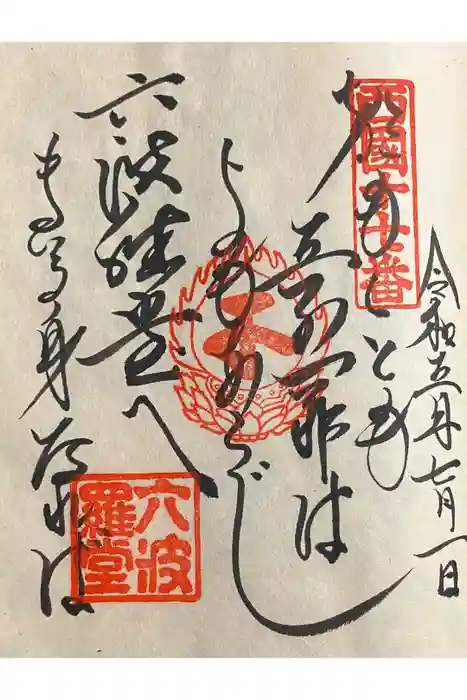 西國十七番
令和五年七月一日
おもくとも
五つの罪は
よもあらじ
六波羅堂へ
まいる身なれば
六波
羅堂